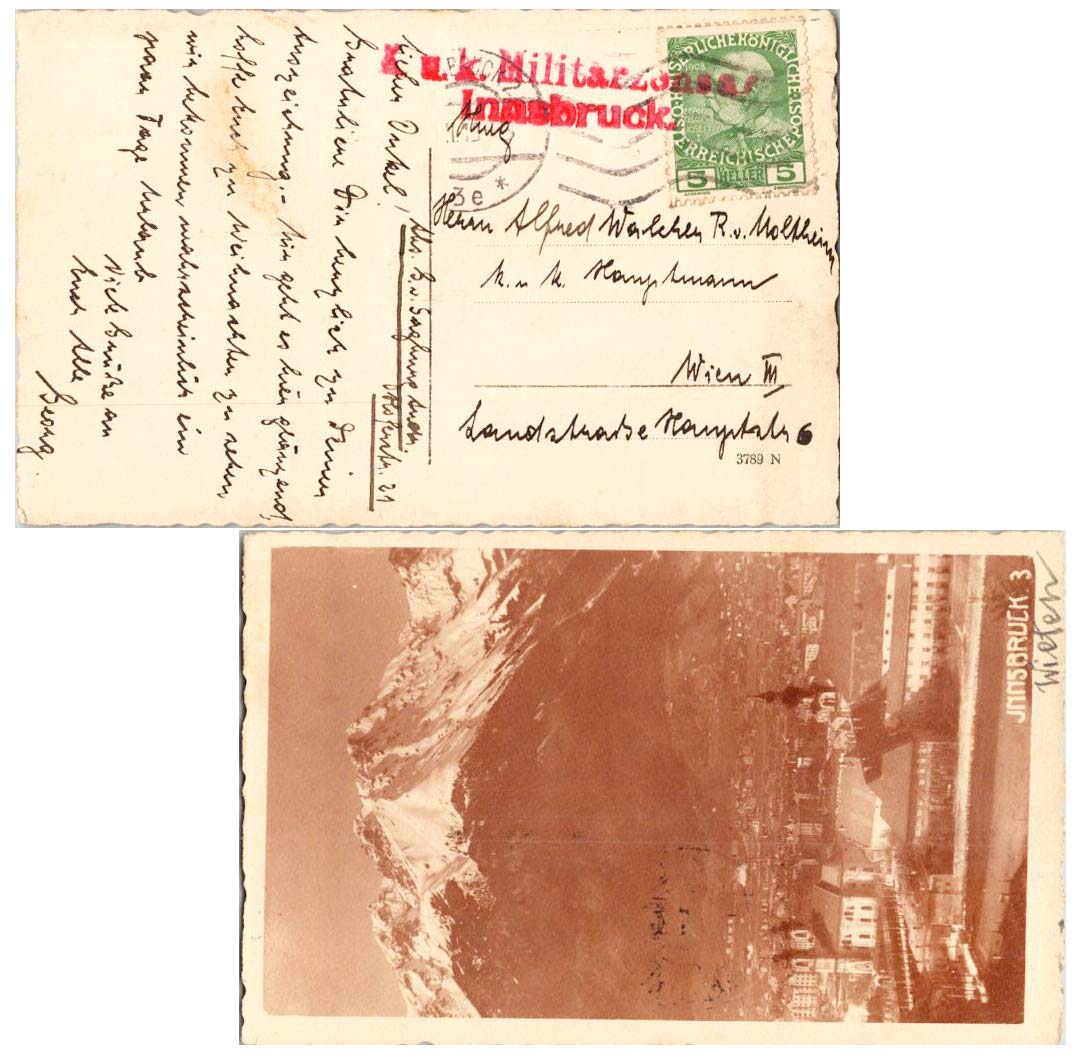 K. u. k. Militärzensur
Innsbruck.
KAISERLICHE KÖNIGLICHE ÖSTERREICHISCHE
1908
5 HELLER 5
3e *
Herrn Alfred Walcher R. v. Moltheim
k. u. k. Hauptmann
Wien III
Landstrasse Hauptstr 6
3789 N
Lieber Onkel!
Gratuliere Dir herzlich zu Deiner
Auszeichnung. - Mir geht es hier glänzend,
hoffe Euch zu Weihnachten zu sehen
wir bekommen wahrscheinlich ein
paar Tage Urlaub
Viele Grüße an
Euch Alle
Georg.
Abs.
21
JNNSBRUCK 3
Wilten